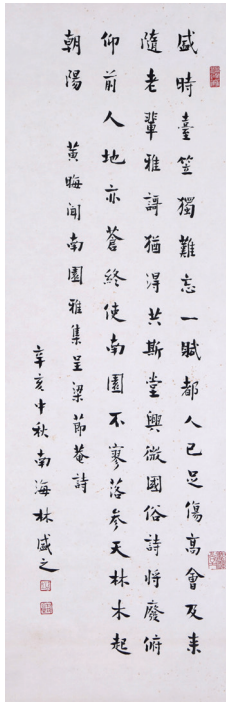 盛時臺笠獨難忘一賦都人已足傷高會及來
隨老輩雅謌猶得共斯堂興微國俗詩將廢俯
仰前人地亦蒼終使南園不寥落参天林木起
朝陽 黃晦聞南園雅集呈梁節菴詩
辛亥中秋南海林盛之